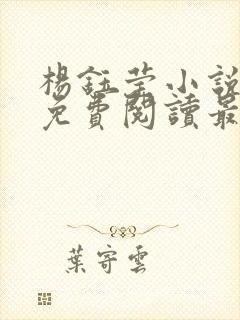 楊鈺瑩小說
免費閱讀最
葉寄雲